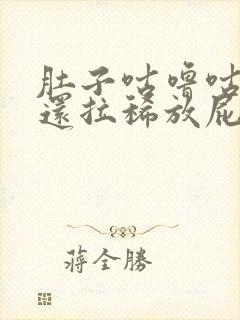 肚子咕嚕咕
還拉稀放屁
蔣全勝